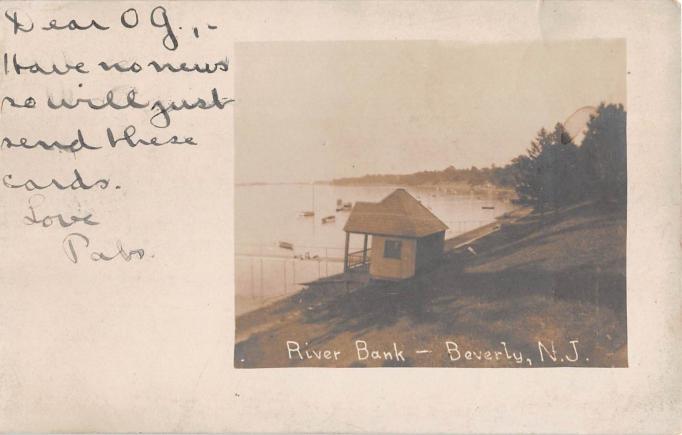 Dear O G.,-
Have no news
so will just
send these
cards.
Love
Pabs.
River Bank - Beverly, N.J.